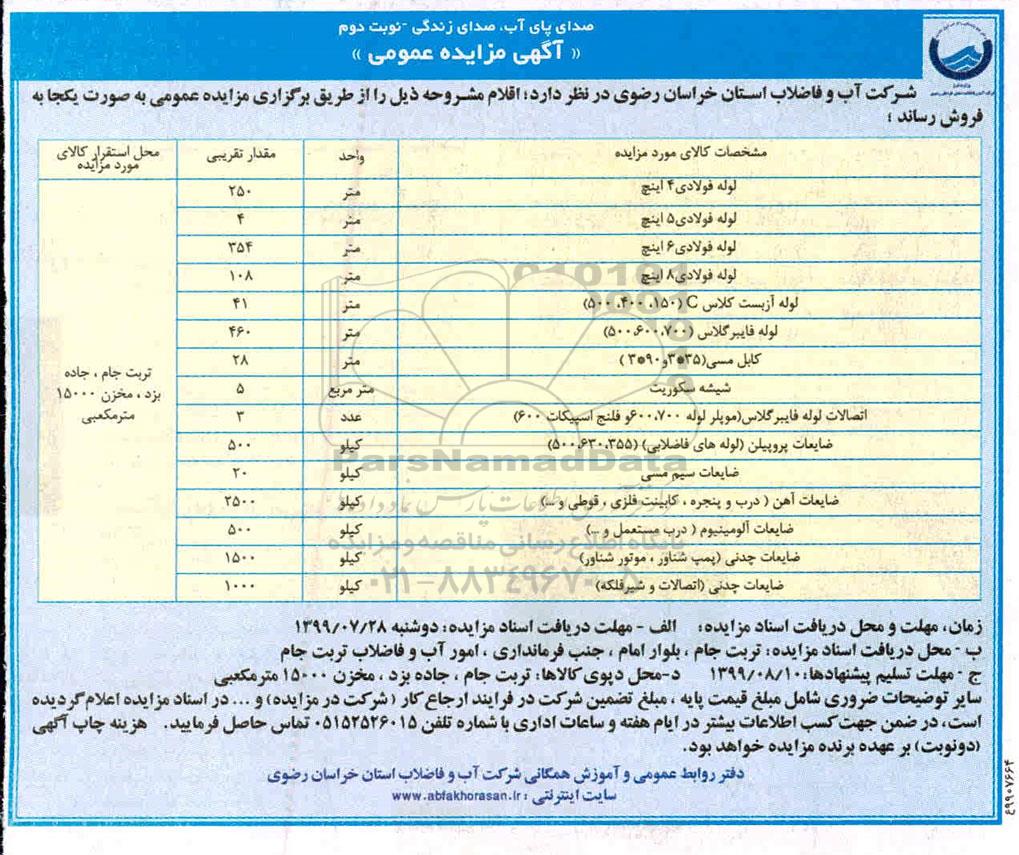 صدای پای آب، صدای زندگی -نوبت دوم
« آگهی مزایده عمومی »
شرکت آب و فاضلاب استان خراسان رضوی در نظر دارد؛ اقلام مشروحه ذیل را از طریق برگزاری مزایده عمومی به صورت یکجا به
فروش رساند ؛
مشخصات کالای مورد مزایده واحد مقدار تقریبی محل استقرار کالای مورد مزایده
لوله فولادی۴ اینچ متر ۲۵۰
لوله فولادی۵ اینچ متر ۴
لوله فولادی۶ اینچ متر ۳۵۴
لوله فولادی۸ اینچ متر ۱۰۸
لوله آزبست کلاس C (۱۵۰، ۴۰۰، ۵۰۰) متر ۴۱
لوله فایبرگلاس (۵۰۰،۶۰۰،۷۰۰) متر ۴۶۰
کابل مسی(۳۵*۳و۹۰*۳ ) متر ۲۸
شیشه سکوریت متر مربع ۵
اتصالات لوله فایبرگلاس(موپلر لوله ۶۰۰،۷۰۰و فلنج اسپیکات ۶۰۰) عدد ۳
ضایعات پروپیلن (لوله های فاضلابی) (۵۰۰،۶۳۰،۳۵۵) کیلو ۵۰۰
ضایعات سیم مسی کیلو ۲۰
ضایعات آهن ( درب و پنجره ، کابینت فلزی ، قوطی و ...) کیلو ۲۵۰۰
ضایعات آلومینیوم ( درب مستعمل و ...) کیلو ۵۰۰
ضایعات چدنی (پمپ شناور ، موتور شناور) کیلو ۱۵۰۰
ضایعات چدنی (اتصالات و شیرفلکه) کیلو ۱۰۰۰
تربت جام ، جاده
یزد ، مخزن ۱۵۰۰۰
مترمکعبی
ParsNamadData
پایگاه اطلاع رسانی مناقصه و مزایده
۰۲۱-۸۸۳۴۹۶۷۰
زمان، مهلت و محل دریافت اسناد مزایده: الف - مهلت دریافت اسناد مزایده: دوشنبه ۱۳۹۹/۰۷/۲۸
ب - محل دریافت اسناد مزایده: تربت جام ، بلوار امام ، جنب فرمانداری ، امور آب و فاضلاب تربت جام
ج - مهلت تسلیم پیشنهادها: ۱۳۹۹/۰۸/۱۰ د-محل دپوی کالاها: تربت جام ، جاده یزد ، مخزن ۱۵۰۰۰ مترمکعبی
سایر توضیحات ضروری شامل مبلغ قیمت پایه ، مبلغ تضمین شرکت در فرایند ارجاع کار ( شرکت در مزایده) و ... در اسناد مزایده اعلام گردیده
است، در ضمن جهت کسب اطلاعات بیشتر در ایام هفته و ساعات اداری با شماره تلفن ۰۵۱۵۲۵۲۶۰۱۵ تماس حاصل فرمایید. هزینه چاپ آگهی
(دونوبت) بر عهده برنده مزایده خواهد بود.
دفتر روابط عمومی و آموزش همگانی شرکت آب و فاضلاب استان خراسان رضوی
سایت اینترنتی : www.abfakhorasan.ir
۴۹۹۰۷۶۶۴